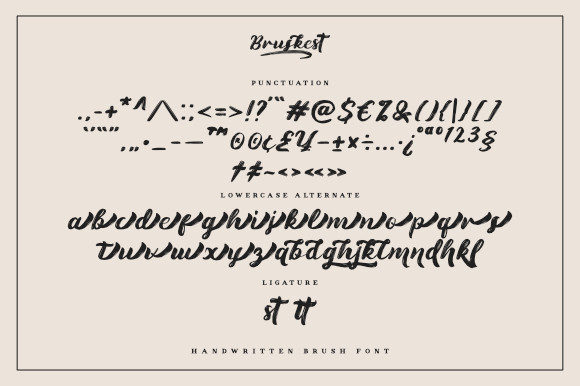 Bruskest
PUNCTUATION
.,-+*^/\:;<=>!?'"#@$€%&(){|}[]
‘’“”‚„•_-–—™00¢£¥-±×÷...·¿°ªº123§
†‡~‹›«»
LOWERCASE ALTERNATE
abcdefghijklmnopqrs
tuvwxyzqbdghjklmndhkl
LIGATURE
st tt
HANDWRITTEN BRUSH FONT